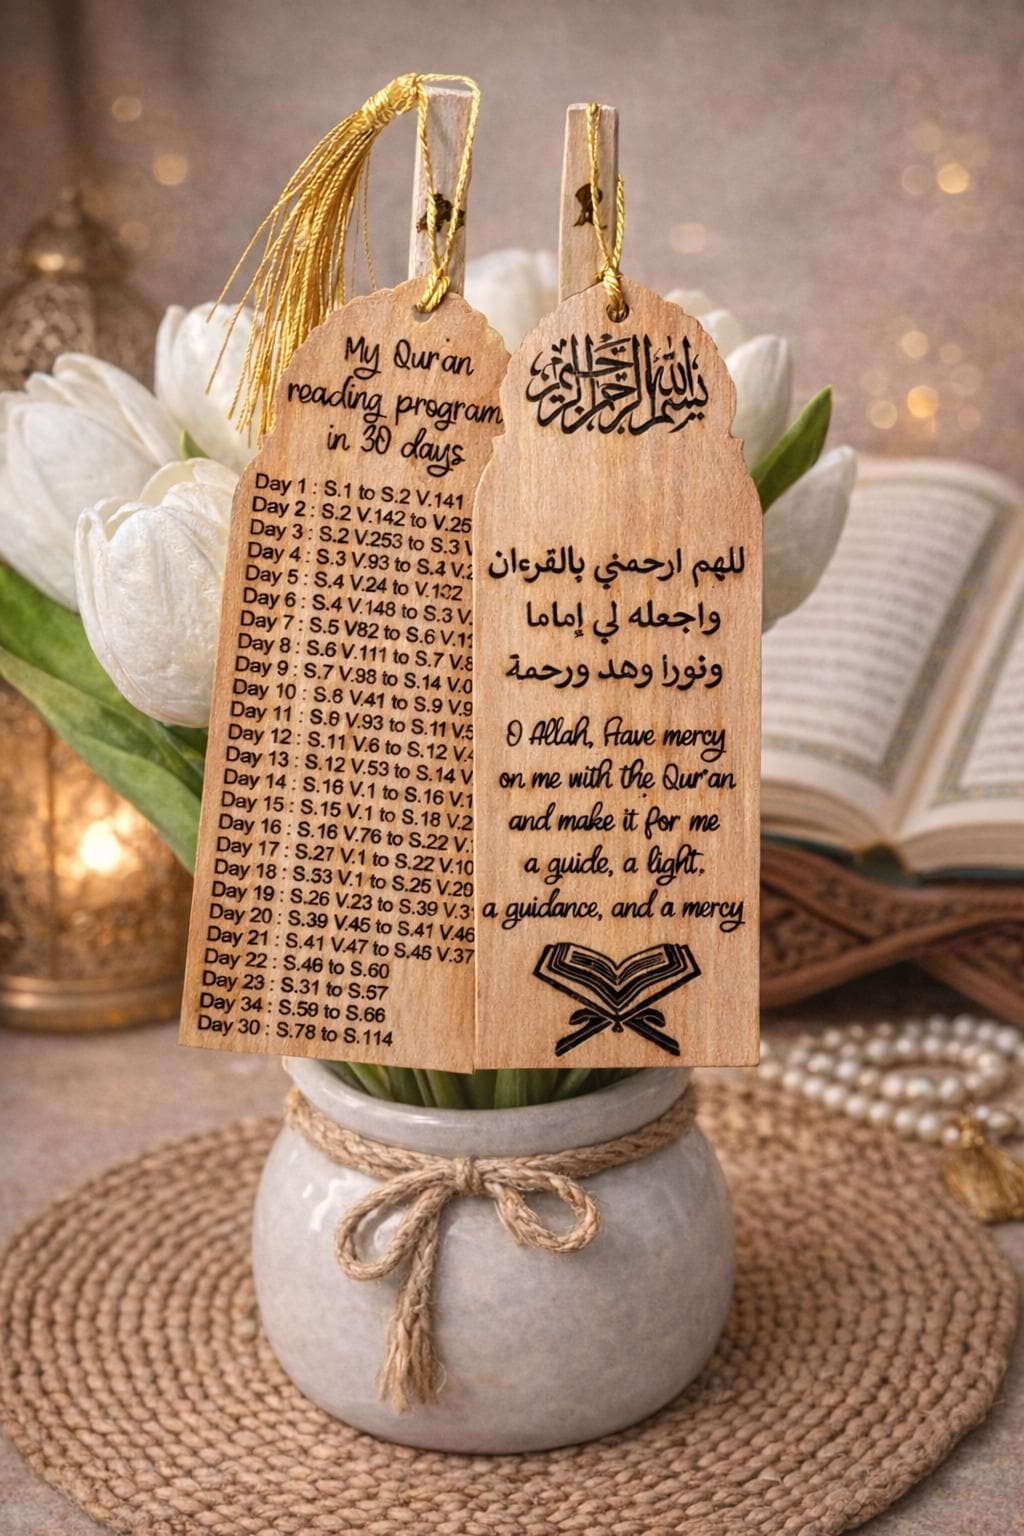 My Qur'an
reading program
in 30 days
Day 1 : S.1 to S.2 V.141
Day 2 : S.2 V.142 to V.25
Day 3 : S.2 V.253 to S.3 V
Day 4 : S.3 V.93 to S.4 V.2
Day 5 : S.4 V.24 to V.132
Day 6 : S.4 V.148 to S.3 V.
Day 7 : S.5 V82 to S.6 V.11
Day 8 : S.6 V.111 to S.7 V.8
Day 9 : S.7 V.98 to S.14 V.0
Day 10 : S.8 V.41 to S.9 V.9
Day 11 : S.6 V.93 to S.11 V.5
Day 12 : S.11 V.6 to S.12 V.4
Day 13 : S.12 V.53 to S.14 V
Day 14 : S.16 V.1 to S.16 V.1
Day 15 : S.15 V.1 to S.18 V.2
Day 16 : S.16 V.76 to S.22 V.
Day 17 : S.27 V.1 to S.22 V.10
Day 18 : S.53 V.1 to S.25 V.20
Day 19 : S.26 V.23 to S.39 V.3
Day 20 : S.39 V.45 to S.41 V.46
Day 21 : S.41 V.47 to S.46 V.37
Day 22 : S.46 to S.60
Day 23 : S.31 to S.57
Day 34 : S.59 to S.66
Day 30 : S.78 to S.114
بسم الله الرحمن الرحيم
للهم ارحمني بالقرءان
واجعله لي إماما
ونورا وهد ورحمة
O Allah, Have mercy
on me with the Qur'an
and make it for me
a guide, a light,
a guidance, and a mercy